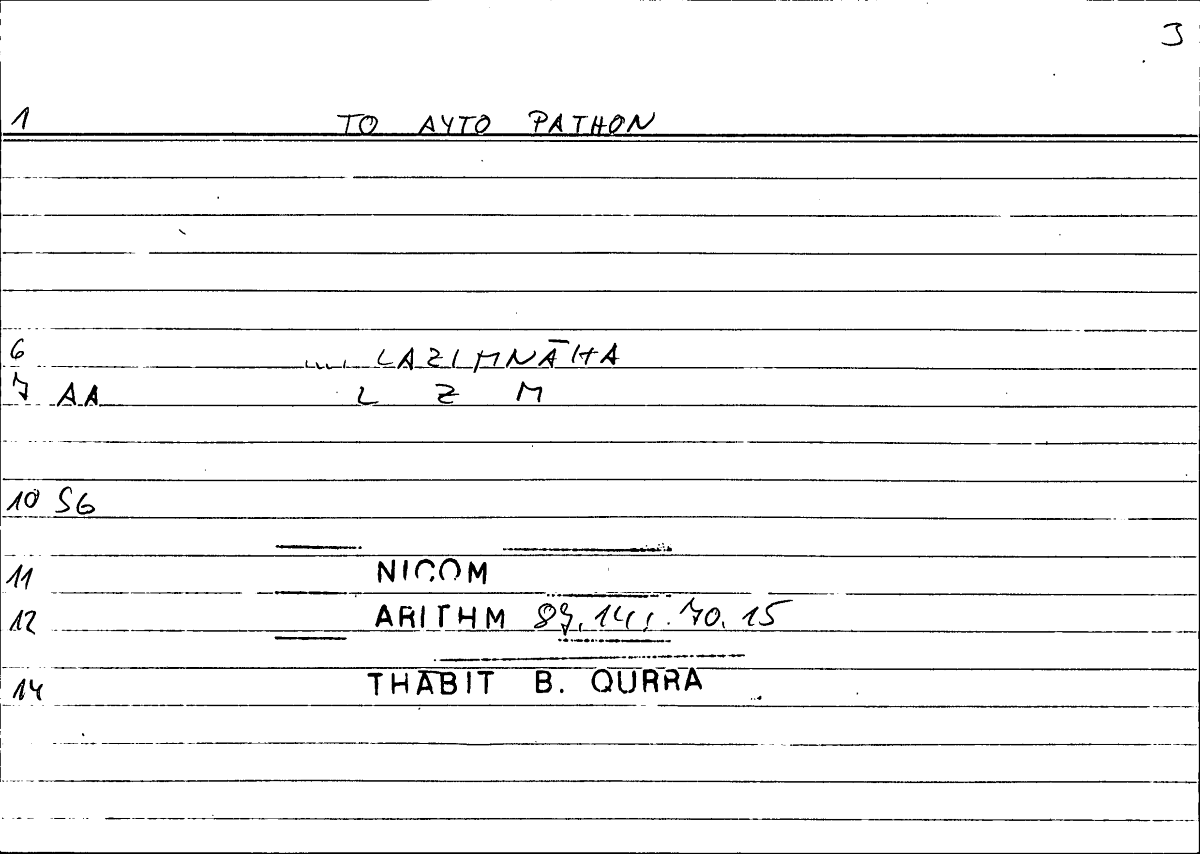 3
1 TO AYTO PATHON
6 .... LAZIMNĀHA
7 AA L Z M
10 SG
11 NICOM
12 ARITHM 87,14; 70.15
14 THABIT B. QURRA